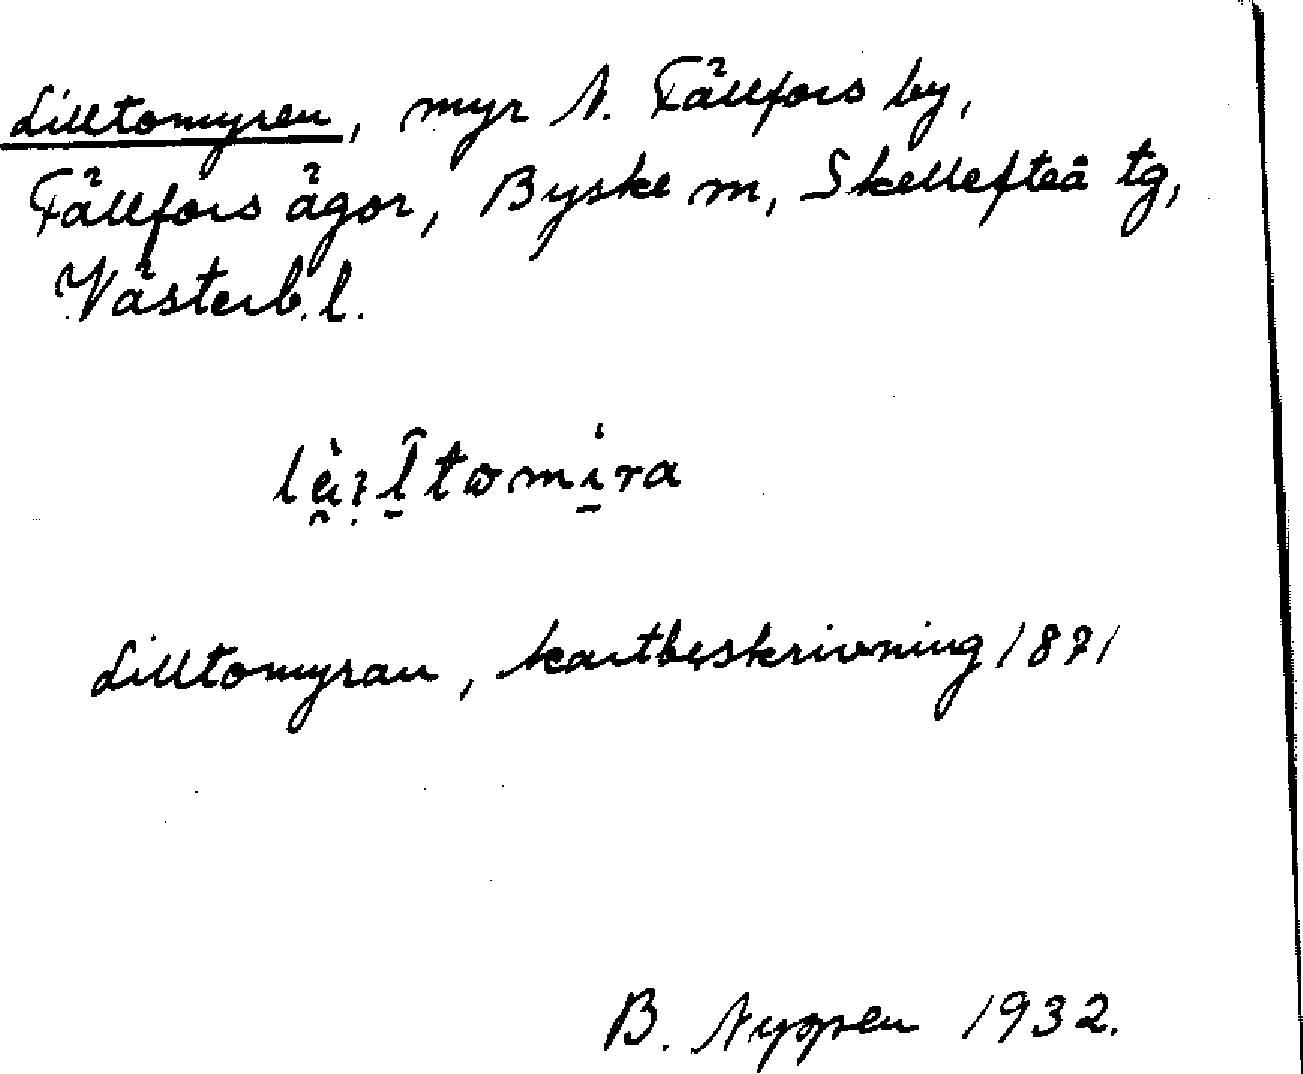 Lilltomyren, myr N. Fällfors by,
Fällfors ägor, Byske sn, Skellefteå tg,
Västerb. l.
Lilltomyran, kartbeskrivning 1871
B. Nygren 1932.